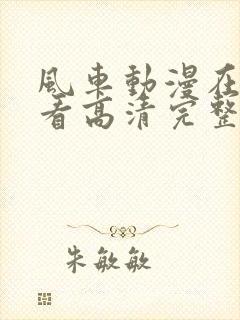 風車動漫在
看高清完整
朱敏敏